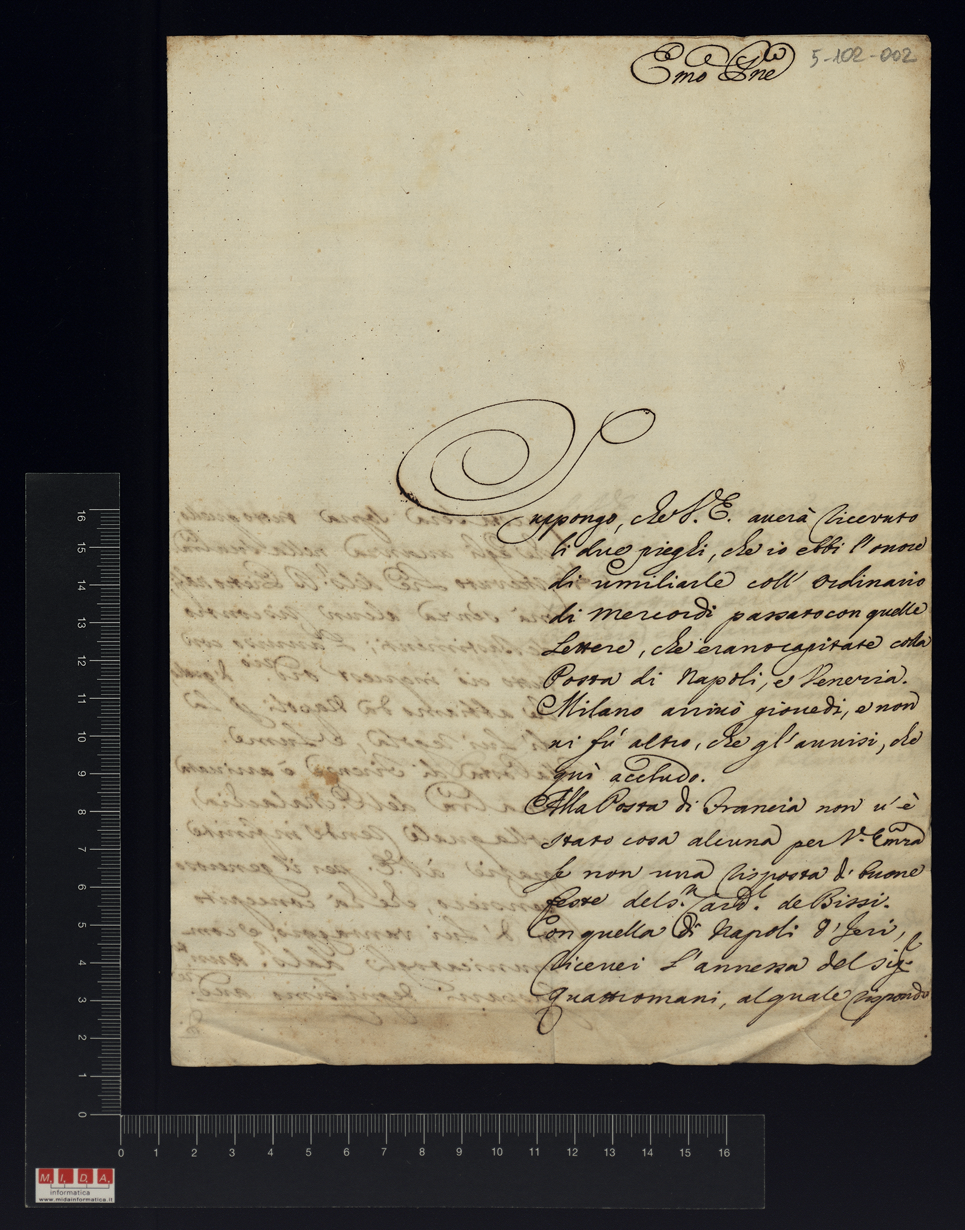 Emo Sne
5-102-002
Suppongo, che V. E. averà ricevuto
li due pieghi, che io ebbi l'onore
di umiliarle coll' ordinario
di mercordì passato con quelle
Lettere, che erano capitate colla
Posta di Napoli, e Venezia.
Milano arrivò giovedì, e non
vi fù altro, che gl'avvisi, che
quì accludo.
Alla Posta di Francia non v'è
stato cosa alcuna per V. Emza
se non una risposta di buone
feste del s.r Card.l de Bissi.
Con quella di Napoli d'Jeri,
ricevei l'annessa del sig.r
Quattromani, al quale rispondo
16
15
14
13
12
11
10
9
8
7
6
5
4
3
2
1
0
0 1 2 3 4 5 6 7 8 9 10 11 12 13 14 15 16
M. I. D. A.
informatica
www.midainformatica.it